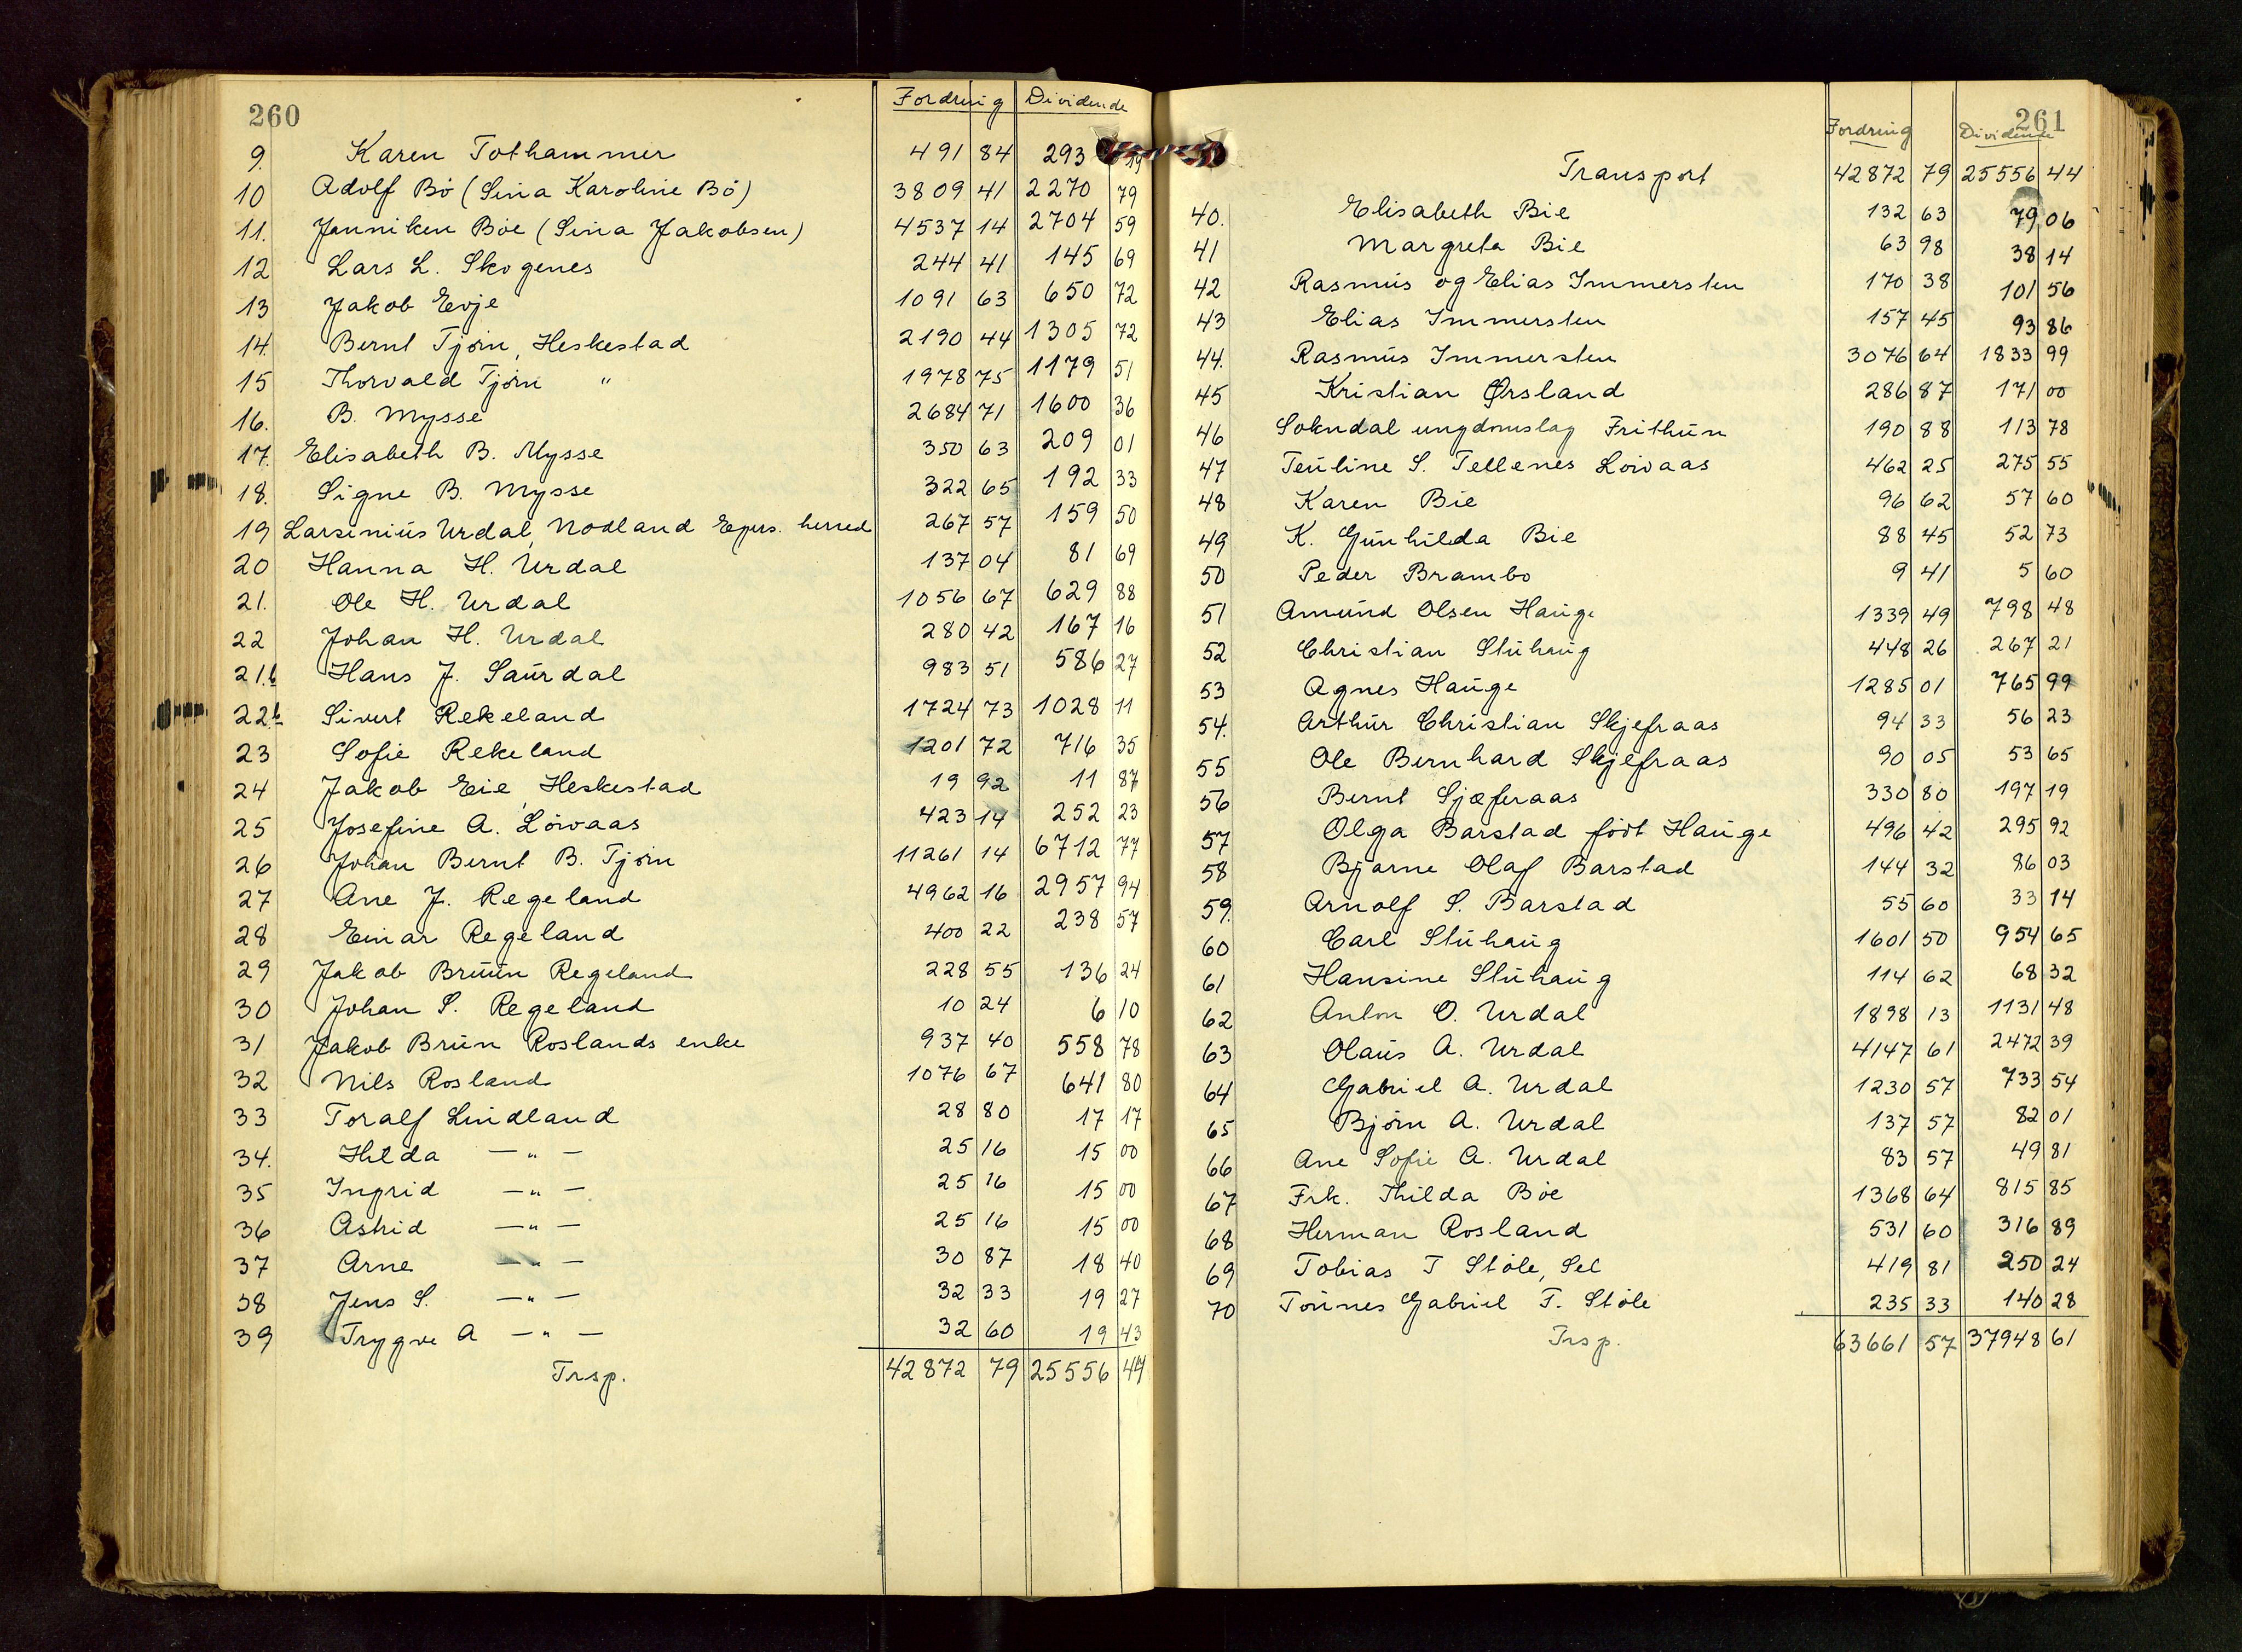 260
Fordring Dividende
9. Karen Tothammer 491 84 293 19
10 Adolf Bö (Sina Karoline Bö) 3809 41 2270 79
11. Janniken Böe (Sina Jakobsen) 4537 14 2704 59
12 Lars L. Skogenes 244 41 145 69
13 Jakob Evje 1091 63 650 72
14. Bernt Tjörn, Heskestad 2190 44 1305 72
15 Thorvald Tjörn " 1978 75 1179 51
16. B. Mysse 2684 71 1600 36
17. Elisabeth B. Mysse 350 63 209 01
18. Signe B. Mysse 322 65 192 33
19 Larsinius Urdal, Nodland Egers. herred 267 57 159 50
20 Hanna H. Urdal 137 04 81 69
21. Ole H. Urdal 1056 67 629 88
22 Johan H. Urdal 280 42 167 16
21.b Hans J. Saurdal 983 51 586 27
22b Sivert Rekeland 1724 73 1028 11
23 Sofie Rekeland 1201 72 716 35
24 Jakob Eie, Heskestad 19 92 11 87
25 Josefine A. Löwaas 423 14 252 23
26 Johan Bernt B. Tjörn 11261 14 6712 77
27 Ane J. Regeland 4962 16 2957 94
28 Einar Regeland 400 22 238 57
29 Jakob Bruun Regeland 228 55 136 24
30 Johan S. Regeland 10 24 6 10
31 Jakob Brun Roslands enke 937 40 558 78
32 Nils Rosland 1076 67 641 80
33 Toralf Lindland 28 80 17 17
34. Hilda — " — 25 16 15 00
35 Ingrid — " — 25 16 15 00
36 Astrid — " — 25 16 15 00
37 Arne — " — 30 87 18 40
38 Jens S. — " — 32 33 19 27
39 Trygve A — " — 32 60 19 43
Trsp. 42872 79 25556 44
261
Fordring Dividende
Transport 42872 79 25556 44
40. Elisabeth Bie 132 63 79 06
41 Margreta Bie 63 98 38 14
42 Rasmus og Elias Immersten 170 38 101 56
43 Elias Immersten 157 45 93 86
44. Rasmus Immersten 3076 64 1833 99
45 Kristian Ørsland 286 87 171 00
46 Sokndal ungdomslag Frithun 190 88 113 78
47 Teuline S. Tellenes Löwaas 462 25 275 55
48 Karen Bie 96 62 57 60
49 K. Gunhilda Bie 88 45 52 73
50 Peder Brambo 9 41 5 60
51 Amund Olsen Hauge 1339 49 798 48
52 Christian Stuhaug 448 26 267 21
53 Agnes Hauge 1285 01 765 99
54. Arthur Christian Skjefraas 94 33 56 23
55 Ole Bernhard Skjefraas 90 05 53 65
56 Bernt Sjæferaas 330 80 197 19
57 Olga Barstad födt Hauge 496 42 295 92
58 Bjarne Olaf Barstad 144 32 86 03
59. Arnolf S. Barstad 55 60 33 14
60 Carl Stuhaug 1601 50 954 65
61 Hansine Stuhaug 114 62 68 32
62 Anton O. Urdal 1898 13 1131 48
63 Olaus A. Urdal 4147 61 2472 39
64 Gabriel A. Urdal 1230 57 733 54
65 Björn A. Urdal 137 57 82 01
66 Ane Sofie A. Urdal 83 57 49 81
67 Frk. Thilda Böe 1368 64 815 85
68 Herman Rosland 531 60 316 89
69 Tobias T Stöle, Sel 419 81 250 24
70 Tönnes Gabriel T. Stöle 235 33 140 28
Trsp. 63661 57 37948 61